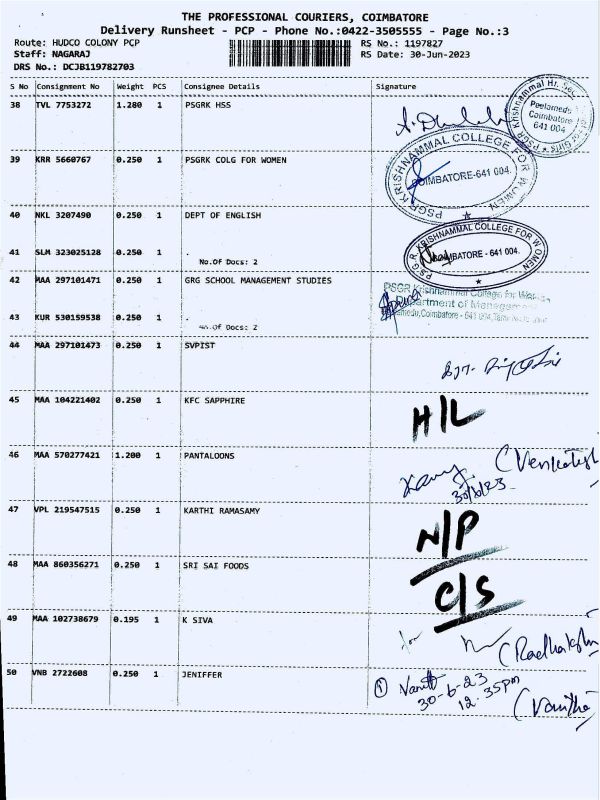 THE PROFESSIONAL COURIERS, COIMBATORE
Delivery Runsheet - PCP - Phone No.:0422-3505555 - Page No.:3
Route: HUDCO COLONY PCP RS No.: 1197827
Staff: NAGARAJ RS Date: 30-Jun-2023
DRS No.: DCJB119782703
S No Consignment No Weight PCS Consignee Details Signature
38 TVL 7753272 1.280 1 PSGRK HSS
Peelamedu
Coimbatore
641 004
39 KRR 5660767 0.250 1 PSGRK COLG FOR WOMEN
PSGR KRISHNAMMAL COLLEGE FOR WOMEN
COIMBATORE-641 004.
40 NKL 3207490 0.250 1 DEPT OF ENGLISH
41 SLM 323025128 0.250 1 .
No.Of Docs: 2
P.S.G.R. KRISHNAMMAL COLLEGE FOR WOMEN
COIMBATORE - 641 004.
42 MAA 297101471 0.250 1 GRG SCHOOL MANAGEMENT STUDIES
PSGR Krishnammal College for Women
Department of Management
43 KUR 530159538 0.250 1 .
No.Of Docs: 2
44 MAA 297101473 0.250 1 SVPIST
45 MAA 104221402 0.250 1 KFC SAPPHIRE
H/L
46 MAA 570277421 1.200 1 PANTALOONS
(Venkatesh
30/6/23
47 VPL 219547515 0.250 1 KARTHI RAMASAMY
N/P
48 MAA 860356271 0.250 1 SRI SAI FOODS
C/S
49 MAA 102738679 0.195 1 K SIVA
(Radhakrishn
50 VNB 2722608 0.250 1 JENIFFER
30-6-23
12.35pm
(Vanitha)